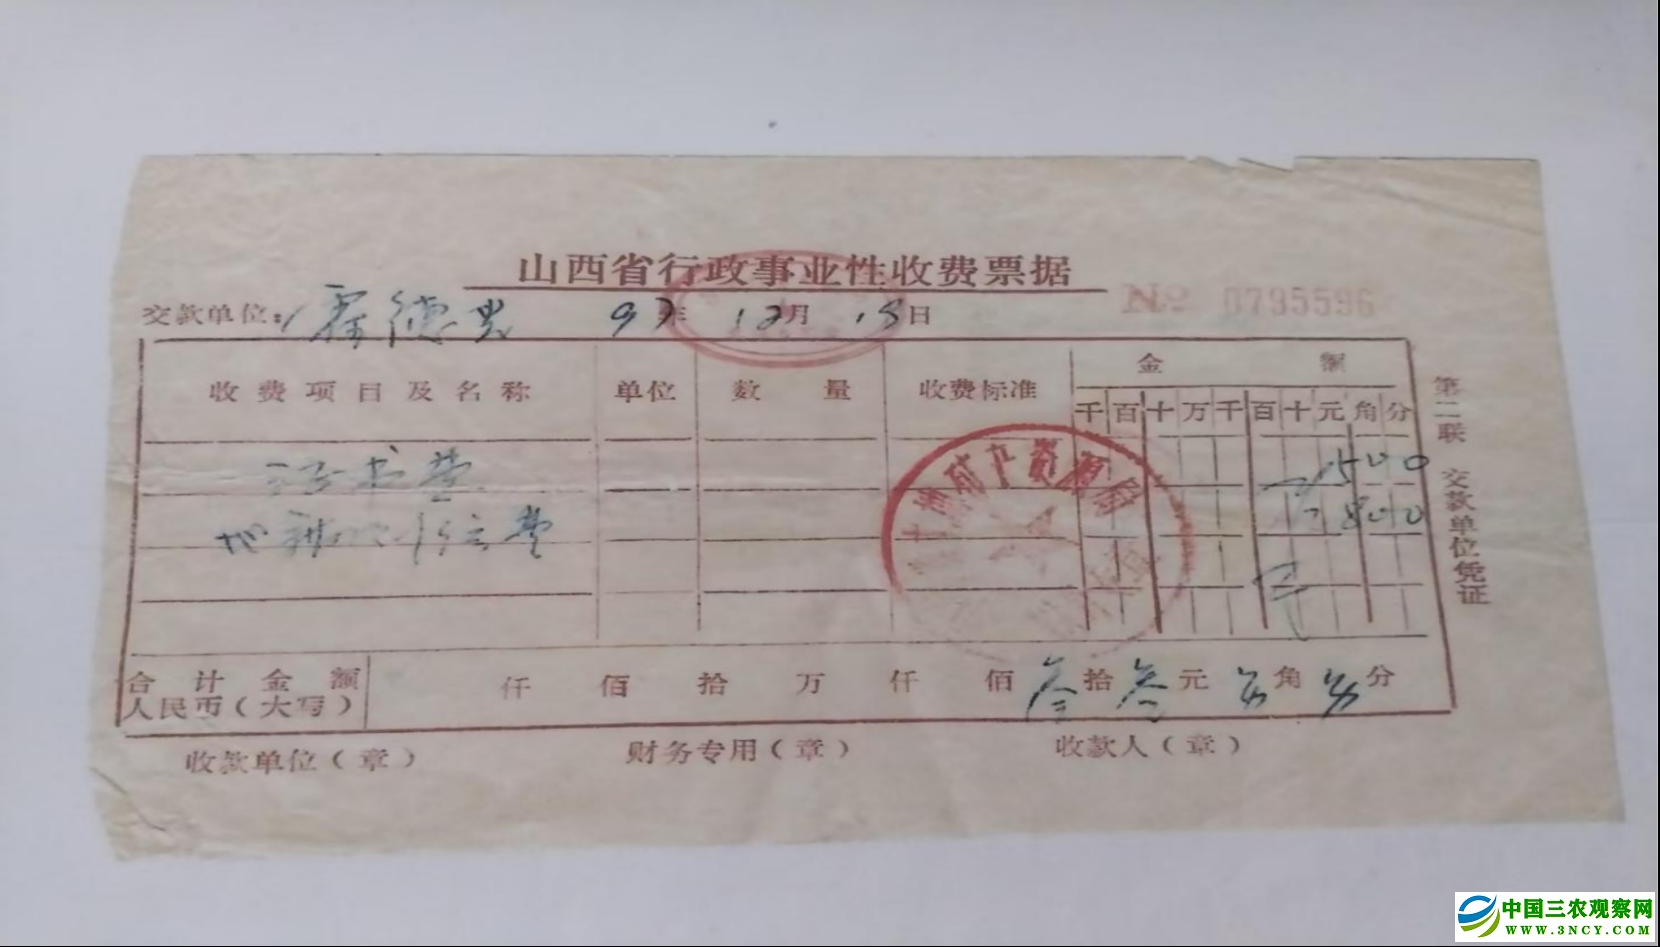 山西省行政事业性收费票据
交款单位: 霍德 97年 12月 18日 № 0795596
收费项目及名称 单位 数量 收费标准 金额
千百十万千百十元角分
证书费 1500
费 1800
合计金额 人民币(大写) 仟 佰 拾 万 仟 佰 叁拾 叁元 角 分
收款单位(章) 财务专用(章) 收款人(章)
第二联 交款单位凭证
矿产资源局
中国三农观察网
WWW.3NCY.COM